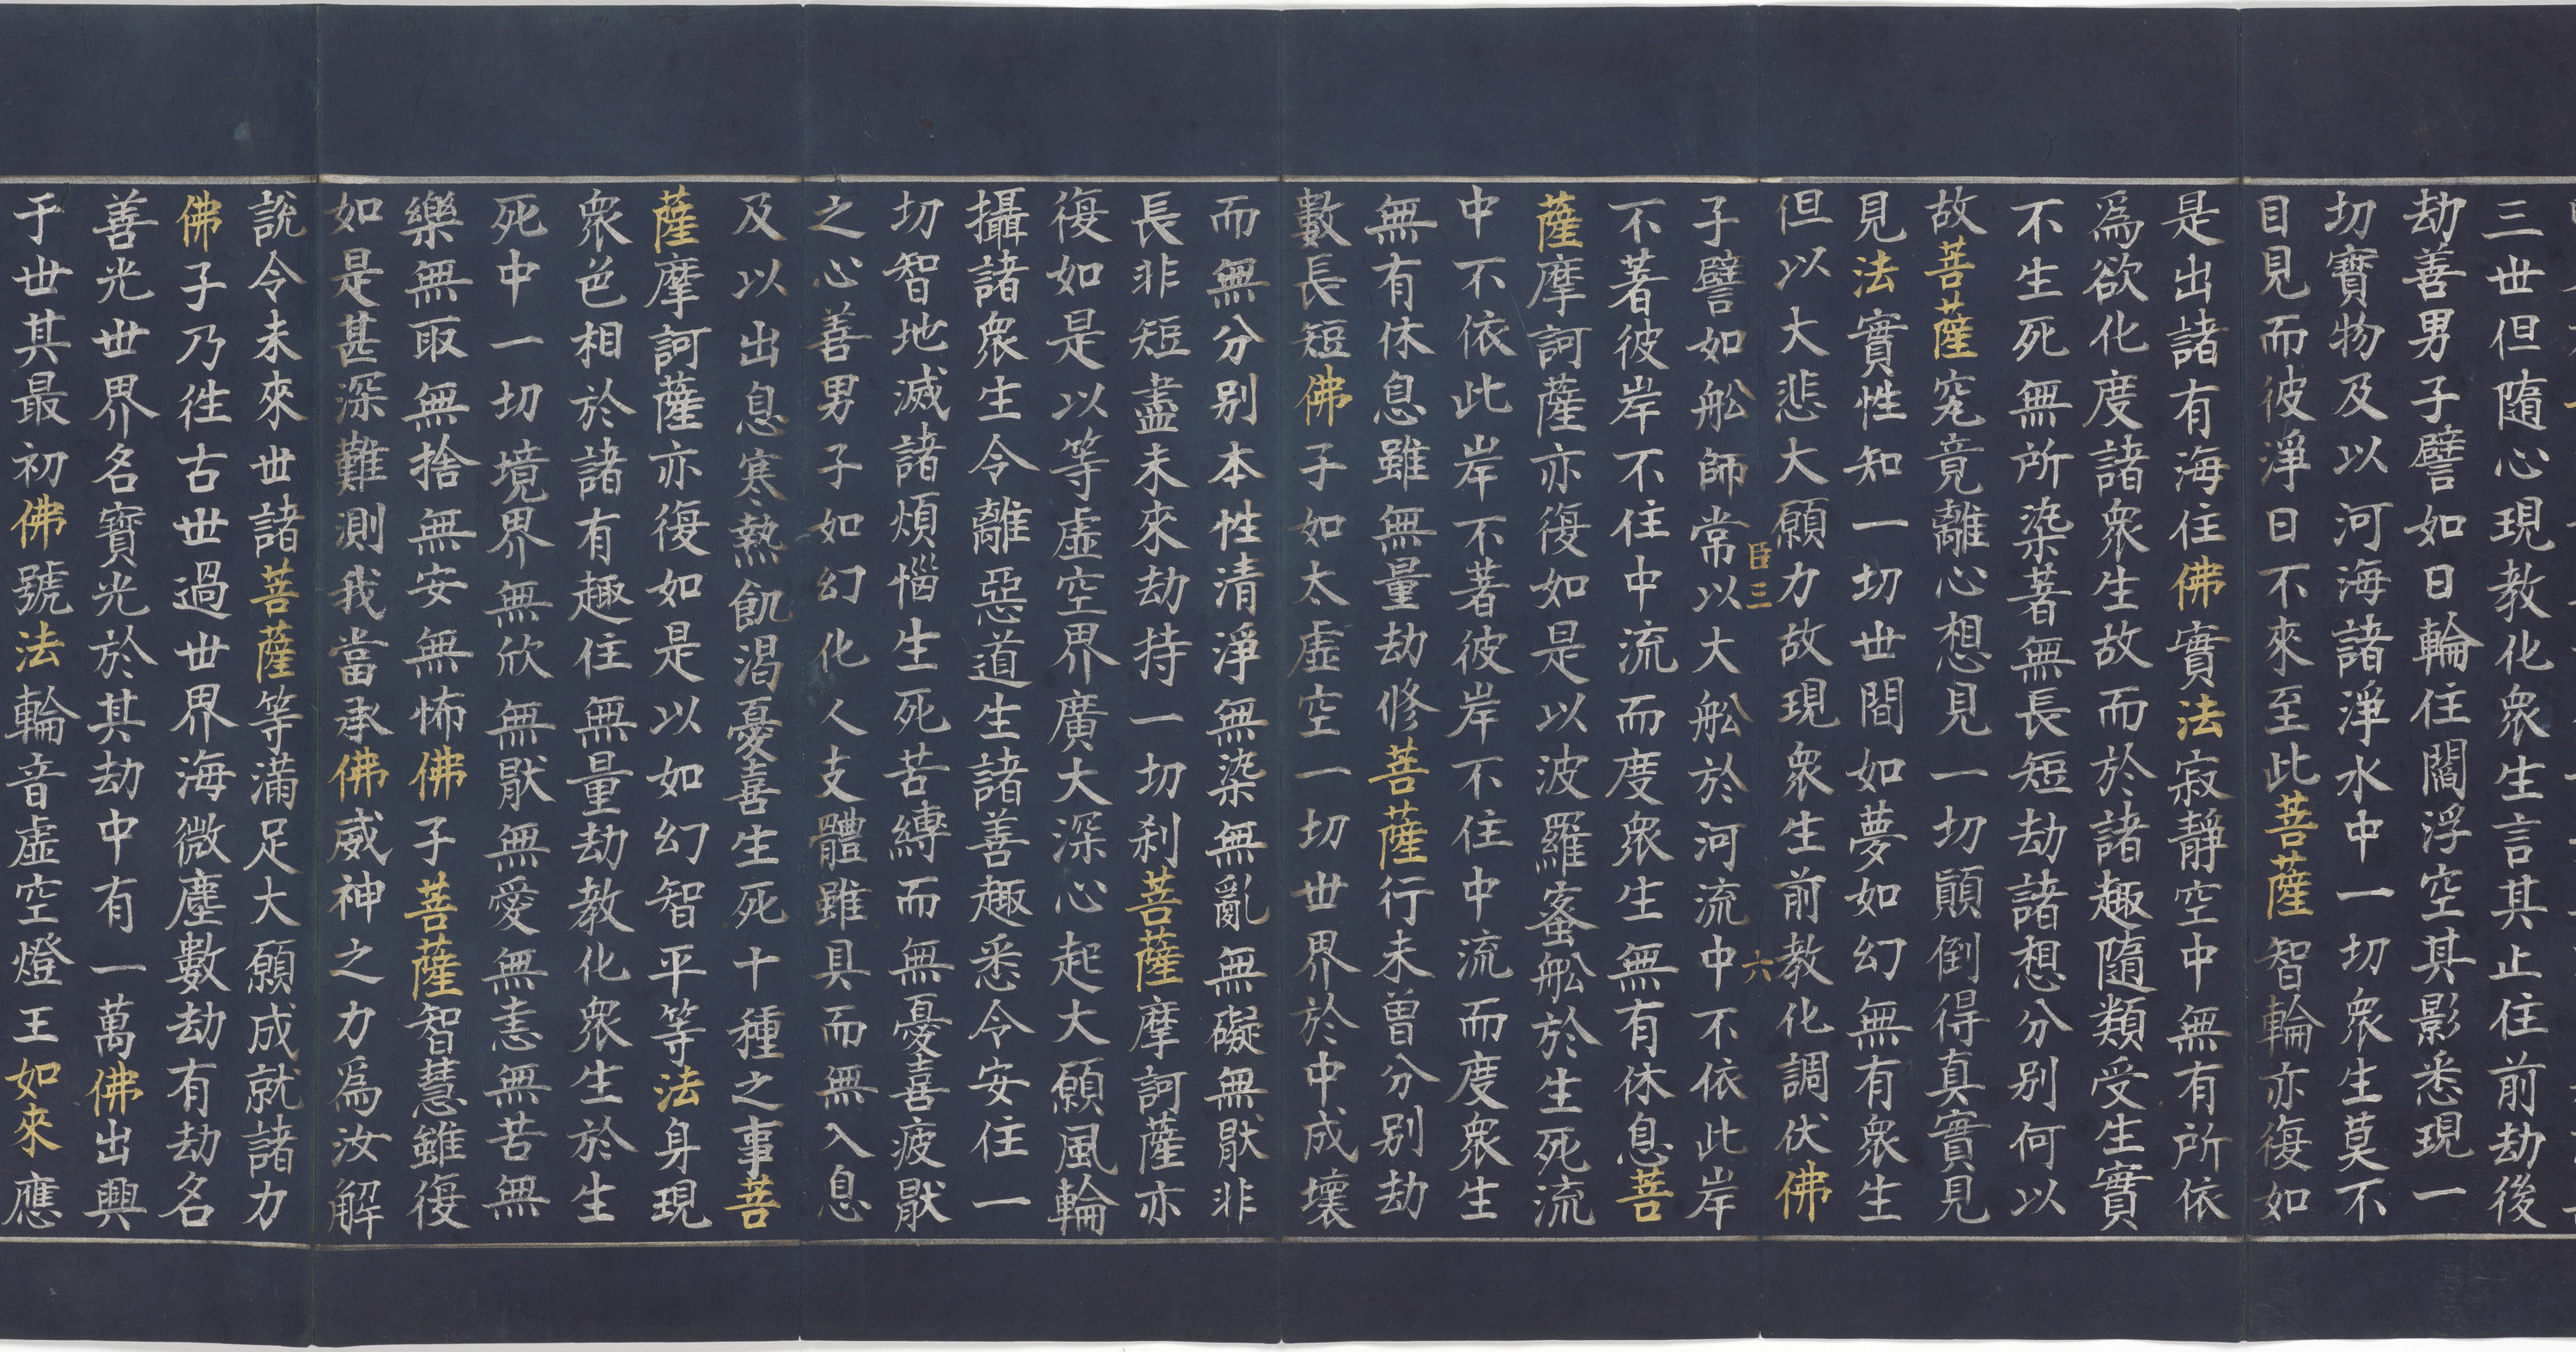 三世但隨心現教化衆生言其止住前劫後
劫善男子譬如日輪住閻浮空其影悉現一
切寶物及以河海諸淨水中一切衆生莫不
目見而彼淨日不來至此菩薩智輪亦復如
是出諸有海住佛實法寂靜空中無有所依
爲欲化度諸衆生故而於諸趣隨類受生實
不生死無所染著無長短劫諸想分別何以
故菩薩究竟離心想見一切顚倒得真實見
見法實性知一切世間如夢如幻無有衆生
但以大悲大願力故現衆生前教化調伏佛
臣三 六
子譬如舩師常以大舩於河流中不依此岸
不著彼岸不住中流而度衆生無有休息菩
薩摩訶薩亦復如是以波羅蜜舩於生死流
中不依此岸不著彼岸不住中流而度衆生
無有休息雖無量劫修菩薩行未曾分別劫
數長短佛子如太虛空一切世界於中成壞
而無分別本性清淨無染無亂無礙無猒非
長非短盡未來劫持一切刹菩薩摩訶薩亦
復如是以等虛空界廣大深心起大願風輪
攝諸衆生令離惡道生諸善趣悉令安住一
切智地滅諸煩惱生死苦縛而無憂喜疲猒
之心善男子如幻化人支體雖具而無入息
及以出息寒熱飢渴憂喜生死十種之事菩
薩摩訶薩亦復如是以如幻智平等法身現
衆色相於諸有趣住無量劫教化衆生於生
死中一切境界無欣無猒無愛無恚無苦無
樂無取無捨無安無怖佛子菩薩智慧雖復
如是甚深難測我當承佛威神之力爲汝解
說令未來世諸菩薩等滿足大願成就諸力
佛子乃徃古世過世界海微塵數劫有劫名
善光世界名寶光於其劫中有一萬佛出興
于世其最初佛號法輪音虛空燈王如來應